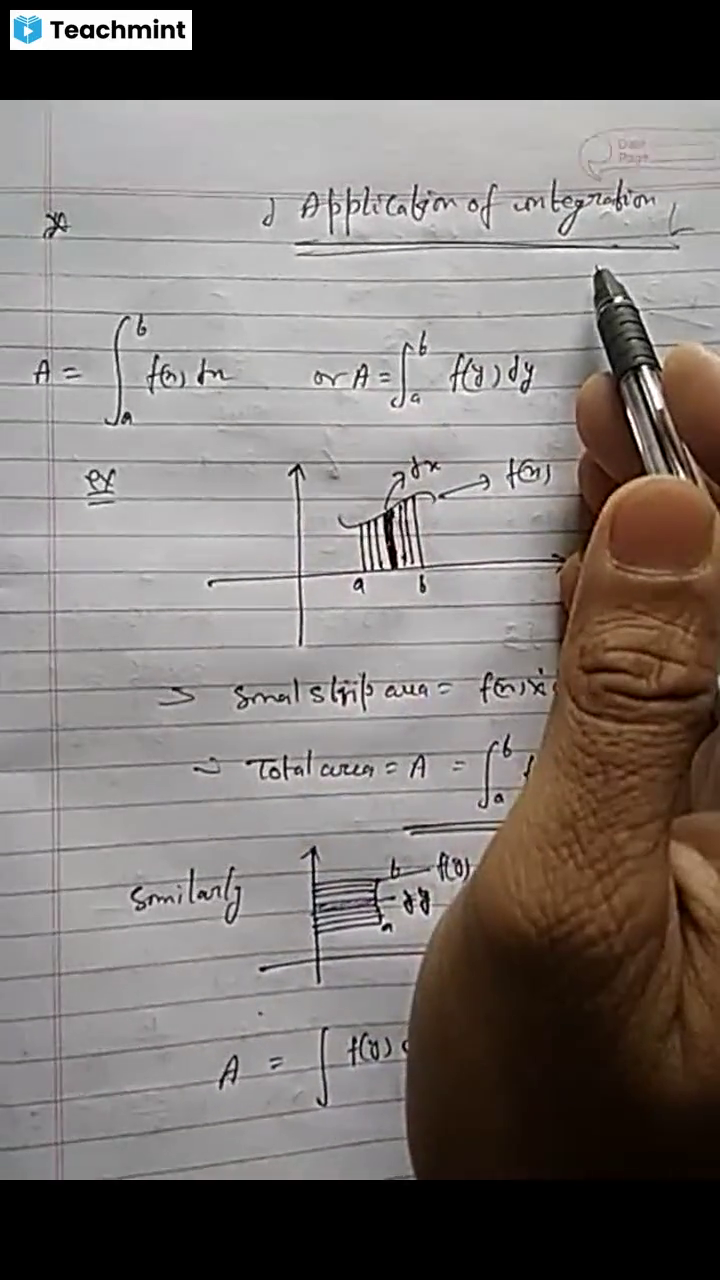 Teachmint
Date
Page
Application of integration
A = ∫_a^b f(x) dx or A = ∫_a^b f(y) dy
ex
dx
f(x)
a b
Smal strip area = f(x) x
Total area = A = ∫_a^b f
Similarly
b f(y)
dy
a
A = ∫ f(y)